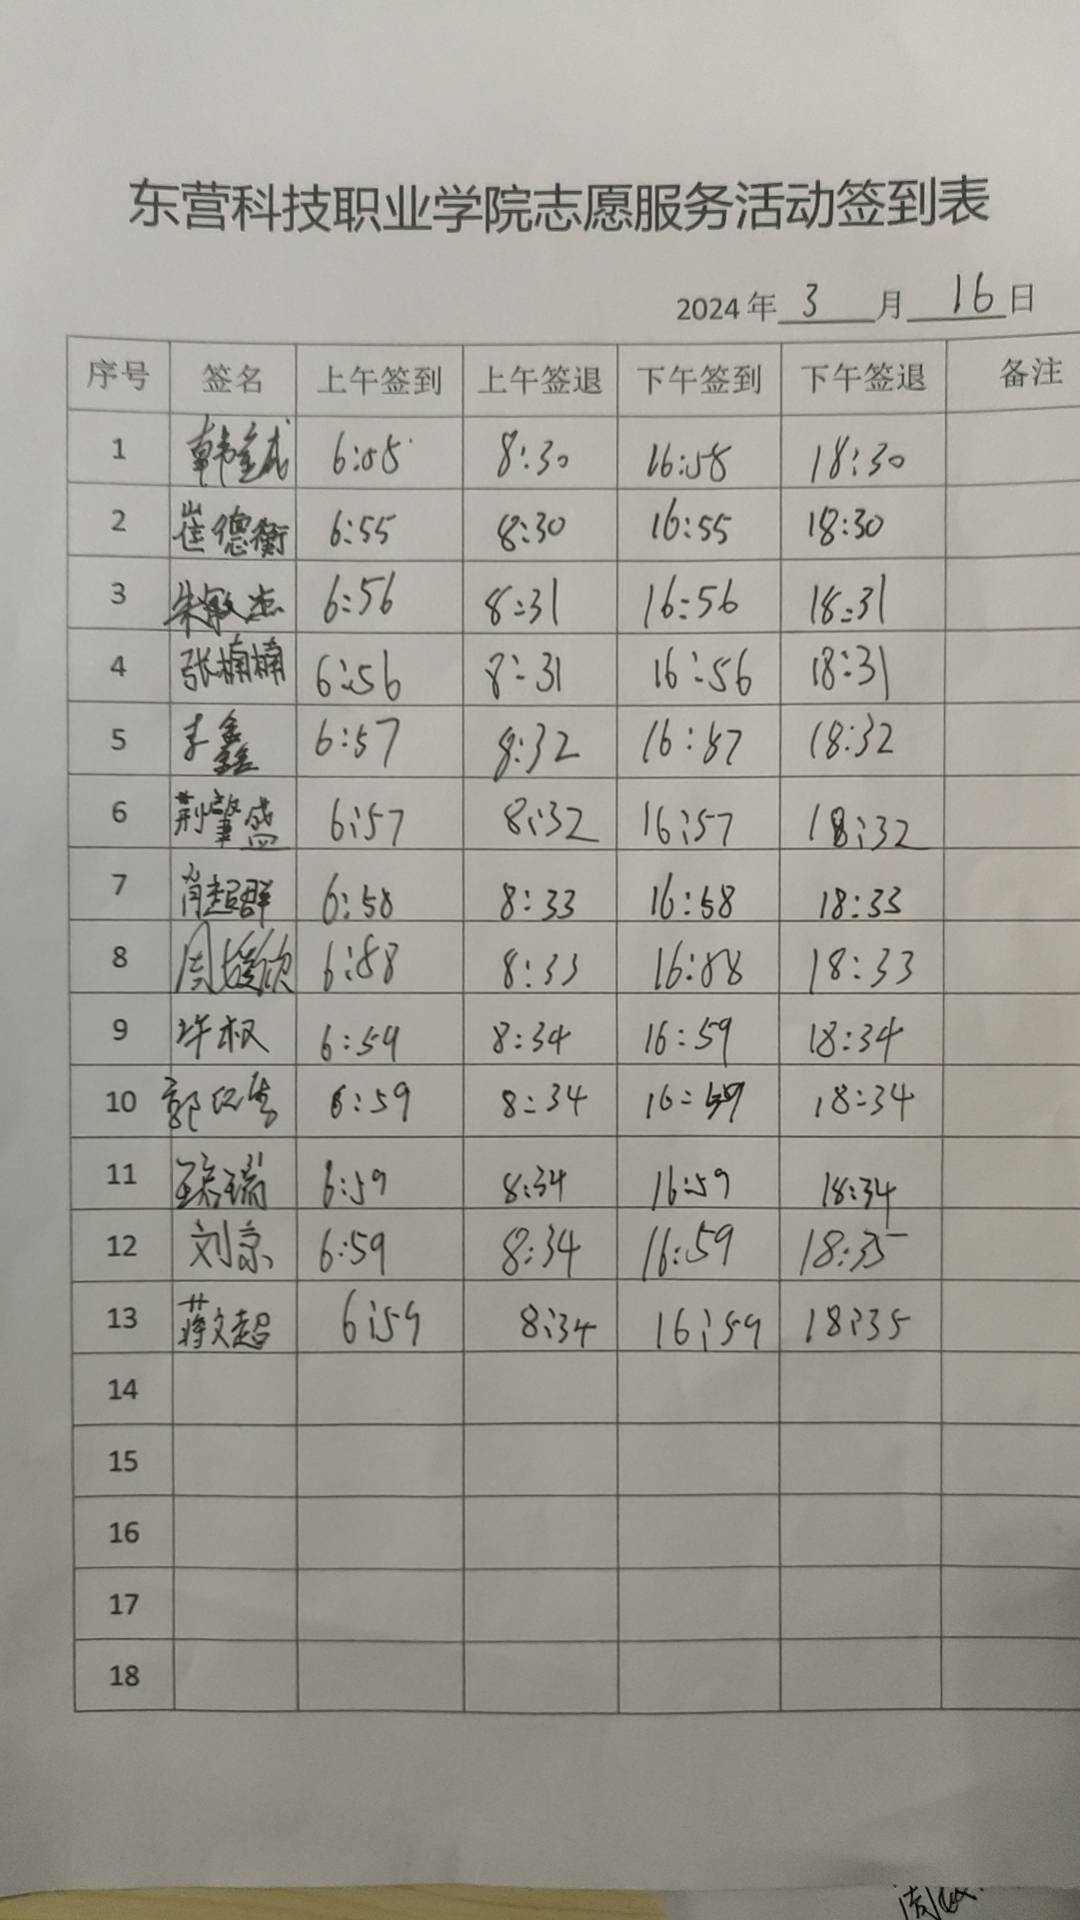 东营科技职业学院志愿服务活动签到表
2024 年 3 月 16 日
序号 签名 上午签到 上午签退 下午签到 下午签退 备注
1 韩 8:30 16:58 18:30
2 崔德衡 6:55 8:30 16:55 18:30
3 朱敏杰 6:56 8:31 16:56 18:31
4 张楠楠 6:56 8:31 16:56 18:31
5 李鑫 6:57 8:32 16:57 18:32
6 荆肇盛 6:57 8:32 16:57 18:32
7 肖超群 6:58 8:33 16:58 18:33
8 周媛欣 6:58 8:33 16:58 18:33
9 许权 6:59 8:34 16:59 18:34
10 郭 6:59 8:34 16:59 18:34
11 6:59 8:34 16:59 18:34
12 刘京 6:59 8:34 16:59 18:35
13 蒋文超 6:59 8:34 16:59 18:35
14
15
16
17
18